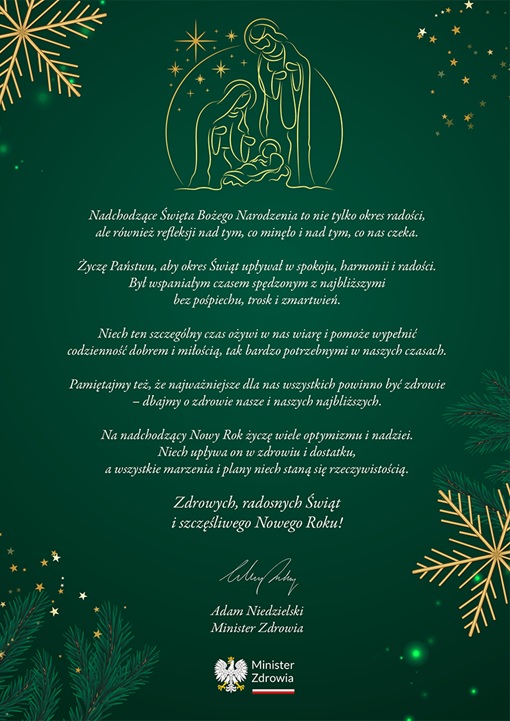 Nadchodzące Święta Bożego Narodzenia to nie tylko okres radości,
ale również refleksji nad tym, co minęło i nad tym, co nas czeka.
Życzę Państwu, aby okres Świąt upływał w spokoju, harmonii i radości.
Był wspaniałym czasem spędzonym z najbliższymi
bez pośpiechu, trosk i zmartwień.
Niech ten szczególny czas ożywi w nas wiarę i pomoże wypełnić
codzienność dobrem i miłością, tak bardzo potrzebnymi w naszych czasach.
Pamiętajmy też, że najważniejsze dla nas wszystkich powinno być zdrowie
– dbajmy o zdrowie nasze i naszych najbliższych.
Na nadchodzący Nowy Rok życzę wiele optymizmu i nadziei.
Niech upływa on w zdrowiu i dostatku,
a wszystkie marzenia i plany niech staną się rzeczywistością.
Zdrowych, radosnych Świąt
i szczęśliwego Nowego Roku!
Adam Niedzielski
Minister Zdrowia
Minister
Zdrowia